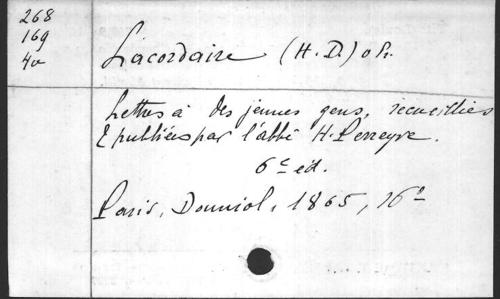 268
169
4o
Lacordaire (H. D.) o Pr.
Lettres à des jeunes gens, recueillies
& publiées par l'abbé H. Perreyve.
6e éd.
Paris, Douniol, 1865, 16o